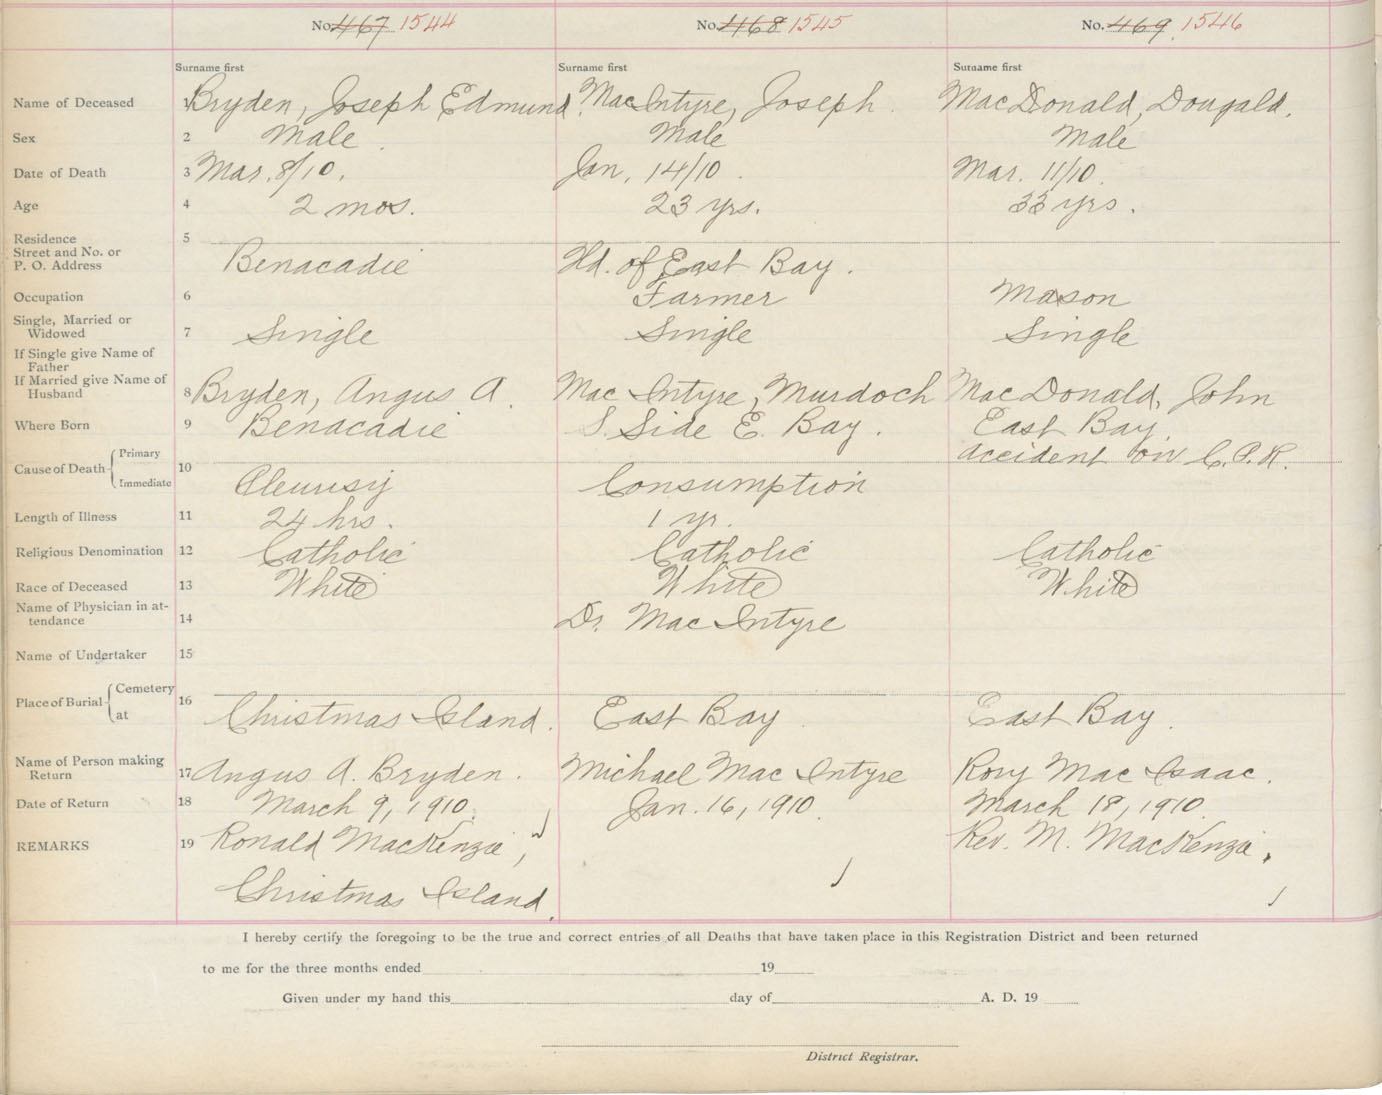 No. 467 1544 No. 468 1545 No. 469 1546
Surname first Surname first Surname first
Name of Deceased 1 Bryden, Joseph Edmund. MacIntyre, Joseph. MacDonald, Dougald.
Sex 2 Male. Male Male
Date of Death 3 Mar. 8/10. Jan. 14/10. Mar. 11/10.
Age 4 2 mos. 23 yrs. 33 yrs.
Residence 5
Street and No. or
P. O. Address Benacadie Hd. of East Bay.
Occupation 6 Farmer Mason
Single, Married or
Widowed 7 Single Single Single
If Single give Name of
Father
If Married give Name of
Husband 8 Bryden, Angus A. Mac Intyre, Murdoch MacDonald, John
Where Born 9 Benacadie S. Side E. Bay. East Bay.
Cause of Death Primary 10 accident on C.P.R.
Immediate Pleurisy Consumption
Length of Illness 11 24 hrs. 1 yr.
Religious Denomination 12 Catholic Catholic Catholic
Race of Deceased 13 White White White
Name of Physician in at-
tendance 14 Dr. Mac Intyre
Name of Undertaker 15
Place of Burial Cemetery 16
at Christmas Island. East Bay East Bay.
Name of Person making
Return 17 Angus A. Bryden. Michael Mac Intyre Rory Mac Isaac.
Date of Return 18 March 9, 1910. Jan. 16, 1910. March 18, 1910.
REMARKS 19 Ronald MacKenzie, Rev. M. MacKenzie.
Christmas Island.
I hereby certify the foregoing to be the true and correct entries of all Deaths that have taken place in this Registration District and been returned
to me for the three months ended 19
Given under my hand this day of A. D. 19
District Registrar.